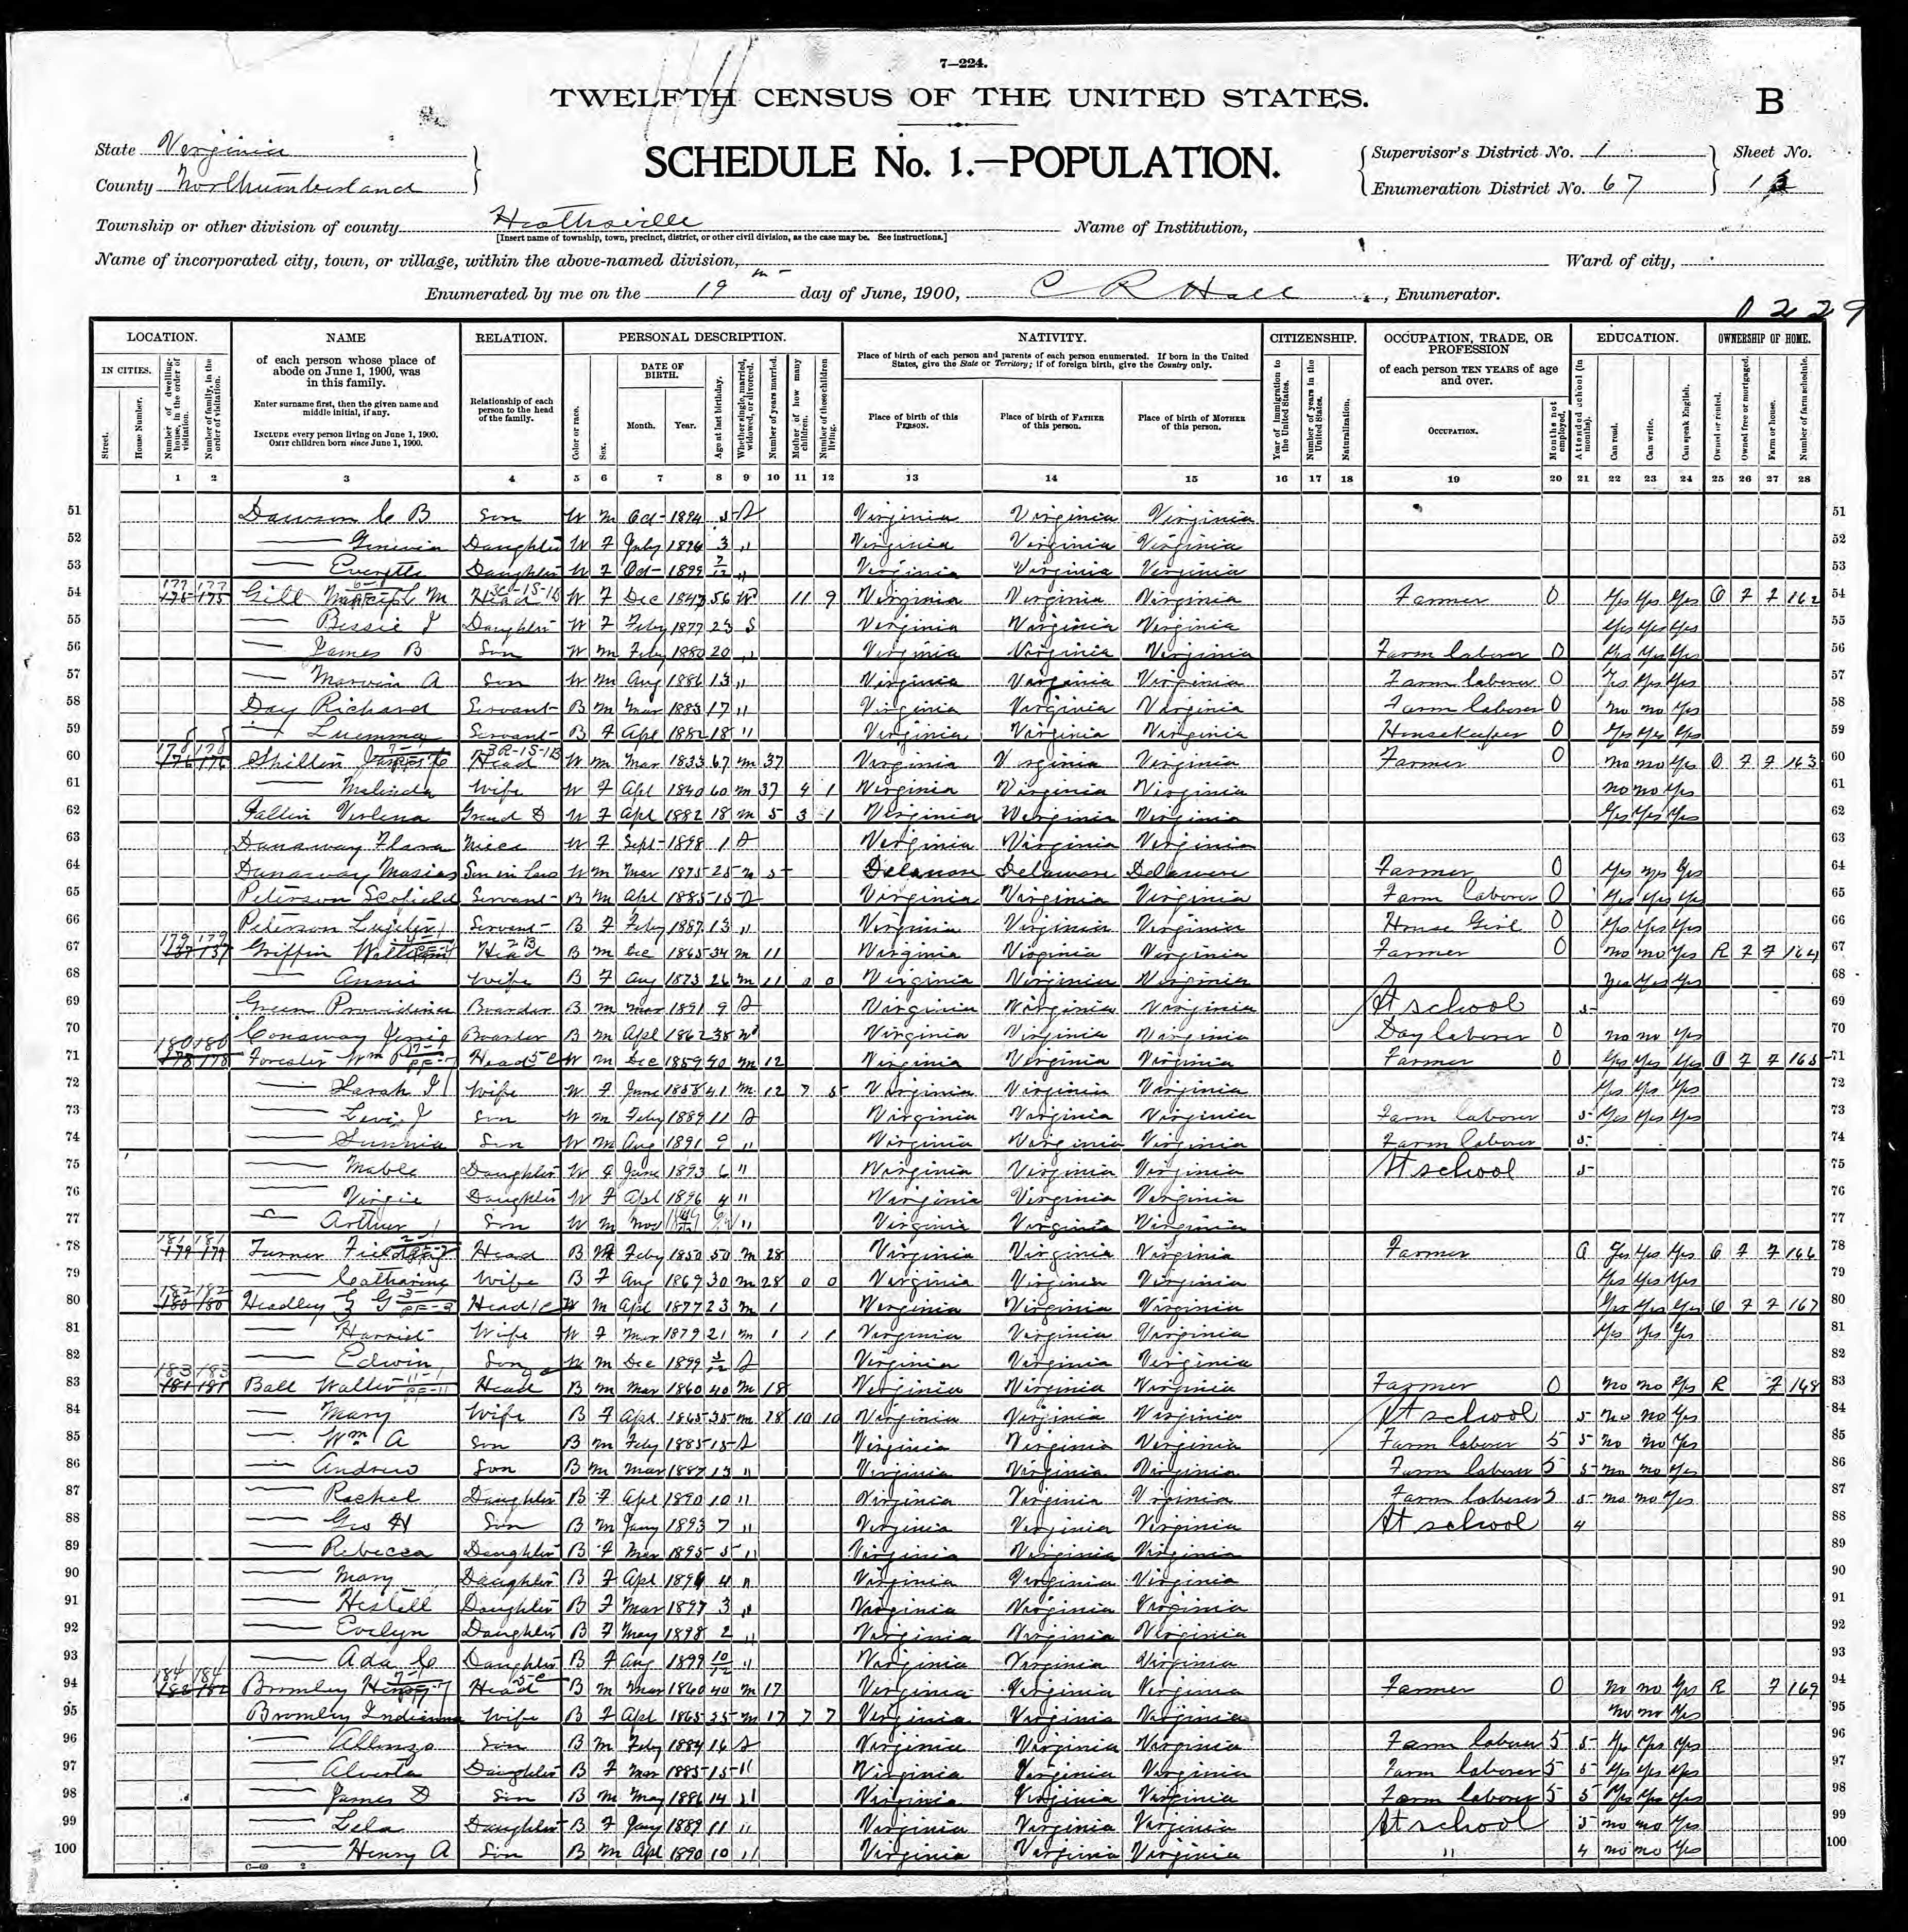 7—224.
TWELFTH CENSUS OF THE UNITED STATES.
B
State Virginia
County Northumberland
SCHEDULE No. 1.—POPULATION.
Supervisor's District No. 1
Enumeration District No. 67
Sheet No.
Township or other division of county Heathsville
[Insert name of township, town, precinct, district, or other civil division, as the case may be. See instructions.]
Name of Institution,
Name of incorporated city, town, or village, within the above-named division,
Ward of city,
Enumerated by me on the 19th day of June, 1900, C R Hall, Enumerator.
LOCATION. NAME RELATION. PERSONAL DESCRIPTION. NATIVITY. CITIZENSHIP. OCCUPATION, TRADE, OR PROFESSION EDUCATION. OWNERSHIP OF HOME.
IN CITIES.
Street.
House Number.
Number of dwelling-house, in the order of visitation.
Number of family, in the order of visitation.
of each person whose place of abode on June 1, 1900, was in this family.
Enter surname first, then the given name and middle initial, if any.
INCLUDE every person living on June 1, 1900.
OMIT children born since June 1, 1900.
Relationship of each person to the head of the family.
Color or race.
Sex.
DATE OF BIRTH.
Month. Year.
Age at last birthday.
Whether single, married, widowed, or divorced.
Number of years married.
Mother of how many children.
Number of these children living.
Place of birth of each person and parents of each person enumerated. If born in the United States, give the State or Territory; if of foreign birth, give the Country only.
Place of birth of this PERSON.
Place of birth of FATHER of this person.
Place of birth of MOTHER of this person.
Year of immigration to the United States.
Number of years in the United States.
Naturalization.
of each person TEN YEARS of age and over.
OCCUPATION.
Months not employed.
Attended school (in months).
Can read.
Can write.
Can speak English.
Owned or rented.
Owned free or mortgaged.
Farm or house.
Number of farm schedule.
1 2 3 4 5 6 7 8 9 10 11 12 13 14 15 16 17 18 19 20 21 22 23 24 25 26 27 28
51 Dawson C B Son W M Oct 1894 5 S Virginia Virginia Virginia 51
52 Daughter W F July 1896 3 " Virginia Virginia Virginia 52
53 Daughter W F Oct 1899 Virginia Virginia Virginia 53
54 177 177 Gill M Head W F Dec 1843 56 W 11 9 Virginia Virginia Virginia Farmer 0 Yes Yes Yes O F F 162 54
55 Bessie J Daughter W F Feby 1877 23 S Virginia Virginia Virginia Yes Yes Yes 55
56 James B Son W M Feby 1880 20 " Virginia Virginia Virginia Farm laborer 0 Yes Yes Yes 56
57 Marvin A Son W M Aug 1886 13 " Virginia Virginia Virginia Farm laborer 0 Yes Yes Yes 57
58 Day Richard Servant B M Mar 1883 17 " Virginia Virginia Virginia Farm laborer 0 no no Yes 58
59 Luemma Servant B F Apl 1882 18 " Virginia Virginia Virginia Housekeeper 0 Yes Yes Yes 59
60 178 178 Head W M Mar 1833 67 M 37 Virginia Virginia Virginia Farmer 0 no no Yes O F F 163 60
61 Malinda Wife W F Apl 1840 60 M 37 4 1 Virginia Virginia Virginia no no Yes 61
62 Fallin Verlena Grand D W F Apl 1882 18 M 5 3 1 Virginia Virginia Virginia Yes Yes Yes 62
63 Dunaway Niece W F Sept 1898 1 S Virginia Virginia Virginia 63
64 Dunaway Son in Law W M Mar 1875 25 M 5 Delaware Delaware Delaware Farmer 0 Yes Yes Yes 64
65 Peterson Scofield Servant B M Apl 1885 15 S Virginia Virginia Virginia Farm laborer 0 Yes Yes Yes 65
66 Peterson Servant B F Feby 1887 13 " Virginia Virginia Virginia House Girl 0 Yes Yes Yes 66
67 179 179 Griffin William Head B M Dec 1865 34 M 11 Virginia Virginia Virginia Farmer 0 no no Yes R F F 164 67
68 Annie Wife B F Aug 1873 26 M 11 0 0 Virginia Virginia Virginia Yes Yes Yes 68
69 Green Providence Boarder B M Mar 1891 9 S Virginia Virginia Virginia At school 5 69
70 Conaway Boarder B M Apl 1862 38 Wd Virginia Virginia Virginia Day laborer 0 no no Yes 70
71 180 180 Forester Wm P Head W M Dec 1859 40 M 12 Virginia Virginia Virginia Farmer 0 Yes Yes Yes O F F 165 71
72 Sarah J Wife W F June 1858 41 M 12 7 5 Virginia Virginia Virginia Yes Yes Yes 72
73 Levi J Son W M Feby 1889 11 S Virginia Virginia Virginia Farm laborer 5 Yes Yes Yes 73
74 Son W M Aug 1891 9 " Virginia Virginia Virginia Farm laborer 5 74
75 Mable Daughter W F June 1893 6 " Virginia Virginia Virginia At school 5 75
76 Virgie Daughter W F Apl 1896 4 " Virginia Virginia Virginia 76
77 Arthur Son W M Nov " Virginia Virginia Virginia 77
78 181 181 Turner Fielding Head B M Feby 1850 50 M 28 Virginia Virginia Virginia Farmer Yes Yes Yes O F F 166 78
79 Catharine Wife B F Aug 1869 30 M 28 0 0 Virginia Virginia Virginia Yes Yes Yes 79
80 182 182 Headley G Head W M Apl 1877 23 M 1 Virginia Virginia Virginia Yes Yes Yes O F F 167 80
81 Harriet Wife W F Mar 1879 21 M 1 1 1 Virginia Virginia Virginia Yes Yes Yes 81
82 Edwin Son W M Dec 1899 S Virginia Virginia Virginia 82
83 183 183 Ball Walter Head B M Mar 1860 40 M 18 Virginia Virginia Virginia Farmer 0 no no Yes R F 168 83
84 Mary Wife B F Apl 1865 35 M 18 10 10 Virginia Virginia Virginia At school 5 no no Yes 84
85 Wm A Son B M Feby 1885 15 S Virginia Virginia Virginia Farm laborer 5 5 no no Yes 85
86 Andrew Son B M Mar 1887 13 " Virginia Virginia Virginia Farm laborer 5 5 no no Yes 86
87 Rachel Daughter B F Apl 1890 10 " Virginia Virginia Virginia Farm laborer 5 5 no no Yes 87
88 Geo H Son B M Jany 1893 7 " Virginia Virginia Virginia At school 4 88
89 Rebecca Daughter B F Mar 1895 5 " Virginia Virginia Virginia 89
90 Mary Daughter B F Apl 1896 4 " Virginia Virginia Virginia 90
91 Hestell Daughter B F Mar 1897 3 " Virginia Virginia Virginia 91
92 Evelyn Daughter B F May 1898 2 " Virginia Virginia Virginia 92
93 Ada C Daughter B F Aug 1899 10/12 " Virginia Virginia Virginia 93
94 184 184 Bromley Henry Head B M Mar 1860 40 M 17 Virginia Virginia Virginia Farmer 0 no no Yes R F 169 94
95 Bromley Indianna Wife B F Apl 1865 35 M 17 7 7 Virginia Virginia Virginia no no Yes 95
96 Allonzo Son B M Feby 1884 16 S Virginia Virginia Virginia Farm laborer 5 5 Yes Yes Yes 96
97 Alverta Daughter B F Mar 1885 15 " Virginia Virginia Virginia Farm laborer 5 5 Yes Yes Yes 97
98 James D Son B M May 1886 14 " Virginia Virginia Virginia Farm laborer 5 5 Yes Yes Yes 98
99 Lela Daughter B F Jany 1889 11 " Virginia Virginia Virginia At school 5 no no Yes 99
100 Henry A Son B M Apl 1890 10 " Virginia Virginia Virginia " 4 no no Yes 100